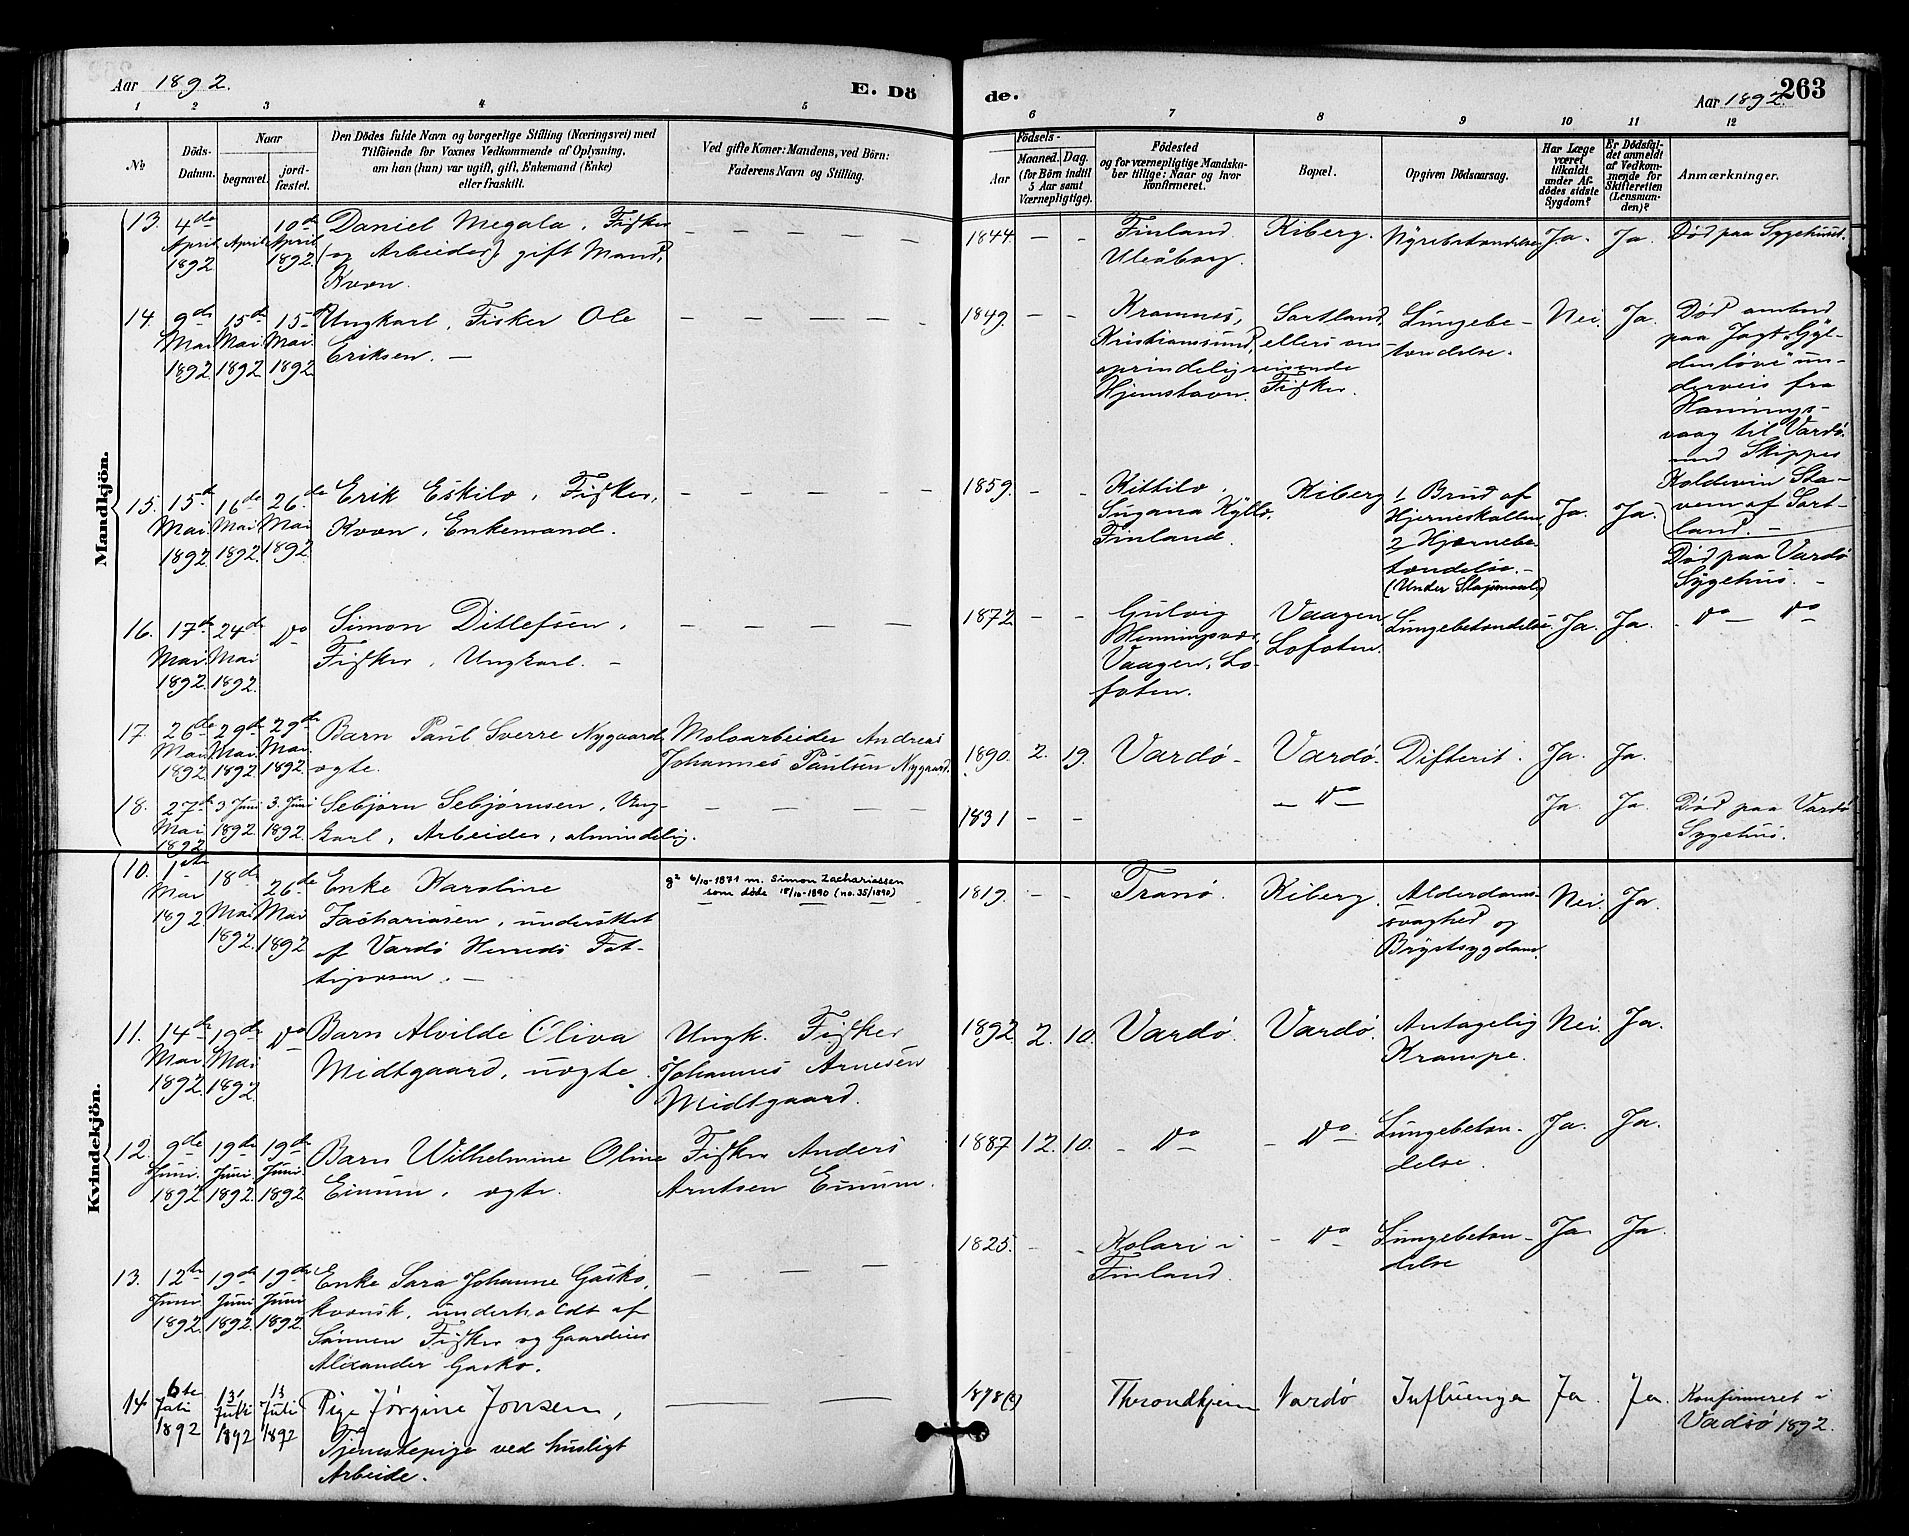 Aar 1892.
E. Dö
de.
Aar 1892.
263
1 2 3 4 5 6 7 8 9 10 11 12
№
Döds-
Datum.
Naar
begravet.
jord-
fæstet.
Den Dödes fulde Navn og borgerlige Stilling (Næringsvei) med
Tilföiende for Voxnes Vedkommende af Oplysning,
om han (hun) var ugift, gift, Enkemand (Enke)
eller fraskilt.
Ved gifte Koner: Mandens, ved Börn:
Faderens Navn og Stilling.
Födsels-
Aar
Maaned.
(for Börn indtil
5 Aar samt
Værnepligtige).
Dag.
Födested
og for værnepligtige Mandska-
ber tillige: Naar og hvor
konfirmeret.
Bopæl.
Opgiven Dödsaarsag.
Har Læge
været
tilkaldt
under Af-
dödes sidste
Sygdom?
Er Dödsfal-
det anmeldt
af Vedkom-
mende for
Skifteretten
(Lensman-
den)?
Anmærkninger.
Mandkjön.
13.
4de
April
1892
April
10de
April
1892.
Daniel Megala. Fisker
(og Arbeider) gift Mand,
Kvæn.
1844. — —
Finland.
Uleåborg.
Kiberg.
Nyrebetændelse
Ja. Ja.
Død paa Sygehuset.
14.
9de
Mai
1892
15de
Mai
1892
15de
Mai
1892
Ungkarl, Fisker Ole
Eriksen. —
1849. — —
Kramnes,
Kristiansund,
oprindelig
Hjemstavn.
Sortland,
ellers om-
reisende
Fisker.
Lungebe-
tændelse.
Nei. Ja.
Død ombord
paa Jagt "Gyl-
denløve" un-
derveis fra
Honnings-
vaag til Vardø
med Skipper
Koldevin Sta-
vem af Sort-
land. —
15.
15de
Mai
1892
16de
Mai
1892.
26de
Mai
1892
Erik Eskilo, Fisker,
Kvæn, Enkemand.
1859. — —
Kittilæ,
Finland.
Kiberg
1 Brud af
Hjerneskallen
2 Hjernebe-
tændelse. —
(Under Slagsmaal)
Ja. Ja.
Død paa Vardø
Sygehus. —
16.
17de
Mai
1892
24de
Mai
1892.
Do
Simon Ditlefsen,
Fisker, Ungkarl. —
1872 — —
Gulvig
Henningsvær,
Vaagen, Lo-
foten.
Vaagen
Lofoten.
Lungebetændelse.
Ja. Ja.
— Do — Do
17.
26de
Mai
1892
29de
Mai
1892
29de
Mai
1892
Barn Paul Sverre Nygaard
ægte.
Moloarbeider Andreas
Johannes Paulsen Nygaard.
1890. 2. 19.
Vardø — Vardø. Difterit. Ja. Ja.
18.
27de
Mai
1892
3 Juni
1892
3. Juni
1892.
Sebjørn Sebjørnsen, Ung-
karl, Arbeider, almindelig.
1831 — —
— Do —
Ja. Ja.
Død paa Vardø
Sygehus.
Kvindekjön.
10.
1ste
Mai
1892
18de
Mai
1892.
26de
Mai
1892
Enke Karoline
Zachariasen, understøttet
af Vardø Herreds Fat-
tigvæsen. —
g² 6/10-1871 m. Simon Zachariassen
som døde 18/10-1890 (no. 35/1890)
1819. — —
Tranø. Kiberg.
Alderdoms-
svaghed og
Brystsygdom.
Nei. Ja.
11.
14de
Mai
1892
19de
Mai
1892
Do
Barn Alvilde Oliva
Midtgaard, uægte.
Ungk. Fisker
Johannes Arnesen
Midtgaard.
1892 2. 10.
Vardø. Vardø.
Antagelig
Krampe.
Nei. Ja.
12.
9de
Juni
1892
19de
Juni
1892.
19de
Juni
1892
Barn Wilhelmine Oline
Einum, ægte.
Fisker Anders
Arntsen Einum.
1887 12. 10.
— Do — Do
Lungebetæn-
delse.
Ja. Ja.
13.
12te
Juni
1892
19de
Juni
1892
19de
Juni
1892.
Enke Sara Johanne Gasko,
kvænsk, underholdt af
Sønnen Fisker og Gaardeier
Alexander Gasko.
1825. — —
Kolari i
Finland.
— Do
Lungebetæn-
delse
Ja Ja
14
6te
Juli
1892
13
Juli
1892
13
Juli
1892
Pige Jørgine Jonsen,
Tjenestepige ved husligt
Arbeide.
1878(?)
Throndhjem Vardø Influenza Ja. Ja.
Konfirmeret i
Vadsø 1892.